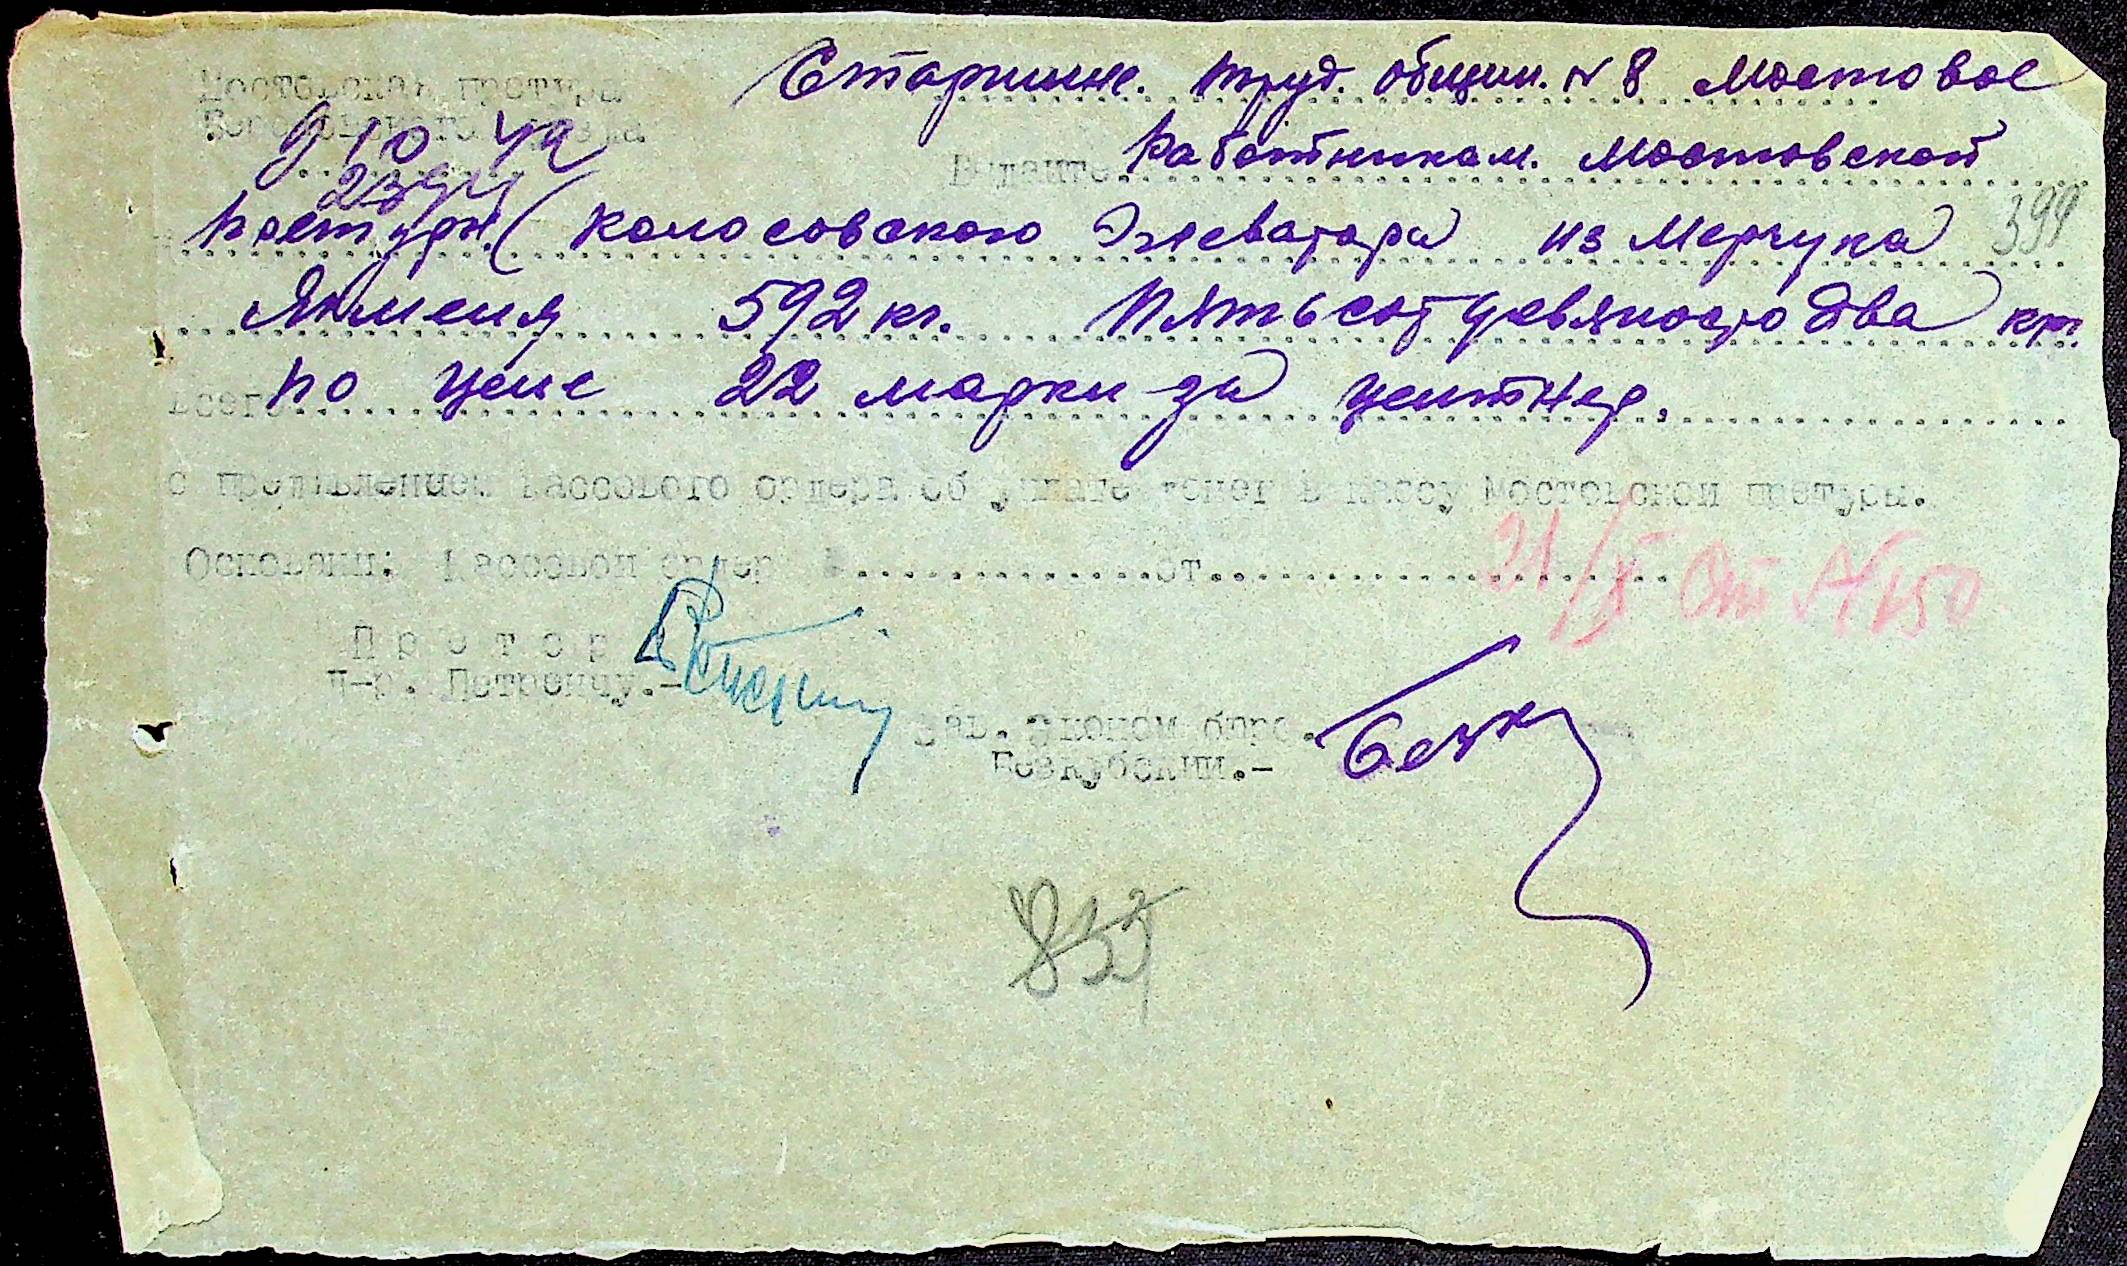 Мостовская претура
Старшине. труд. общин. № 8 Мостовое
9 10 42
Выдайте Работникам. Мостовской
2394
Претуры. ( Колосовского Элеватора из
399
Ячменя 592 кг. Пятьсот девяносто два кгр.
Всего по цене 22 марки за центнер.
с предъявлением кассового ордера об уплате денег в кассу Мостовской претуры.
Основани: Кассовой ордер от
21/X От № 150
Претор
П-р. Петренчу.-
Зав. Эконом бюро.
Безкубский.-